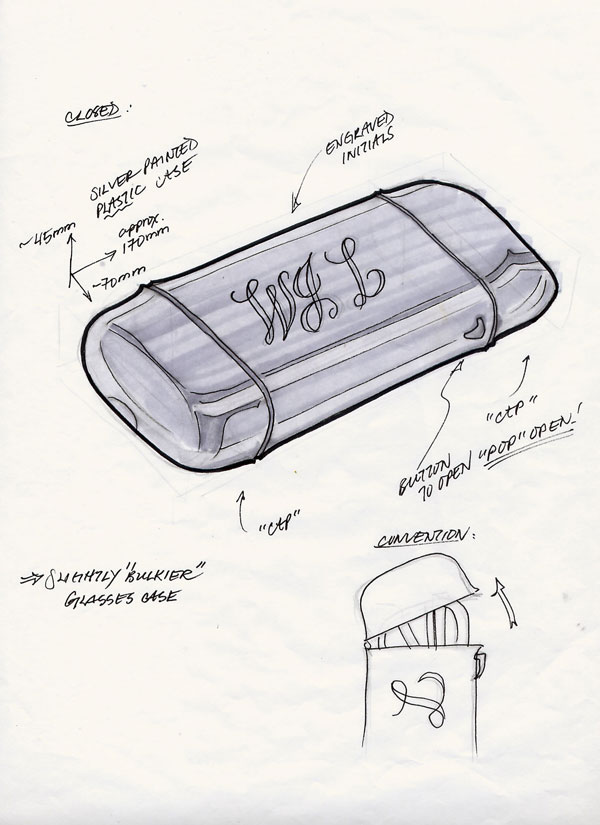 CLOSED:
ENGRAVED
INITIALS
SILVER PAINTED
PLASTIC CASE
~45mm
approx.
170mm
~70mm
WJL
"CAP"
BUTTON
TO OPEN "POP" OPEN!
"CAP"
CONVENTION:
⇒ SLIGHTLY "BULKIER"
GLASSES CASE